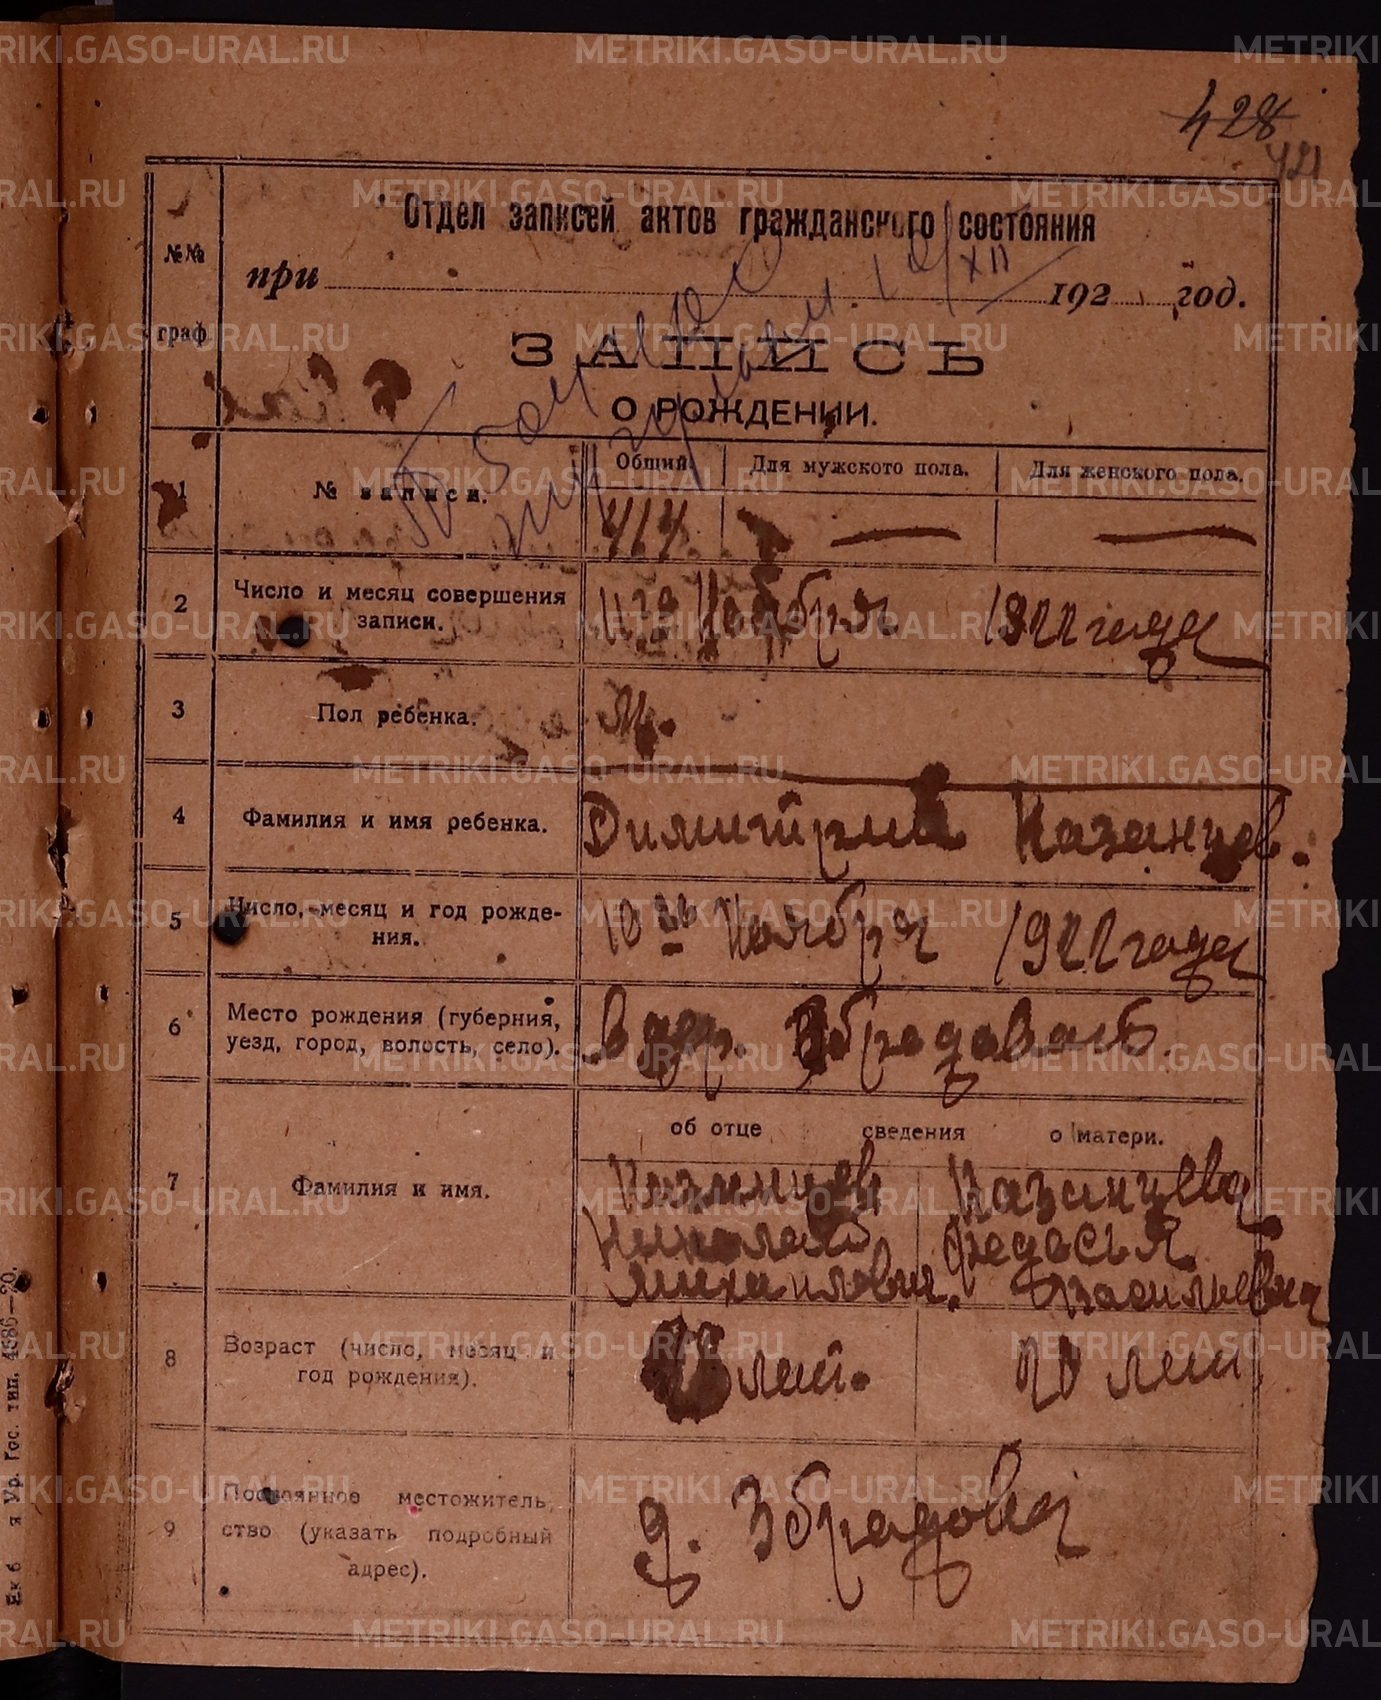 428
421
№№
граф
Отдел записей актов гражданского состояния
при 192 год.
ЗАПИСЬ
О РОЖДЕНИИ.
1 № записи. Общий. Для мужского пола. Для женского пола.
414.
2 Число и месяц совершения записи. 11го Ноября 1922 года
3 Пол ребенка. М.
4 Фамилия и имя ребенка. Димитрий Казанцев.
5 Число, месяц и год рождения. 10го Ноября 1922 года
6 Место рождения (губерния,
уезд, город, волость, село). в дер.
об отце сведения о матери.
7 Фамилия и имя.
Казанцев Казанцева
Николай Федосья
Михаилович. Васильевна
8 Возраст (число, месяц и
год рождения). лет. 20 лет
9 Постоянное местожитель-
ство (указать подробный
адрес).
д. Збродова
Гос. тип. 4686—20.
METRIKI.GASO-URAL.RU